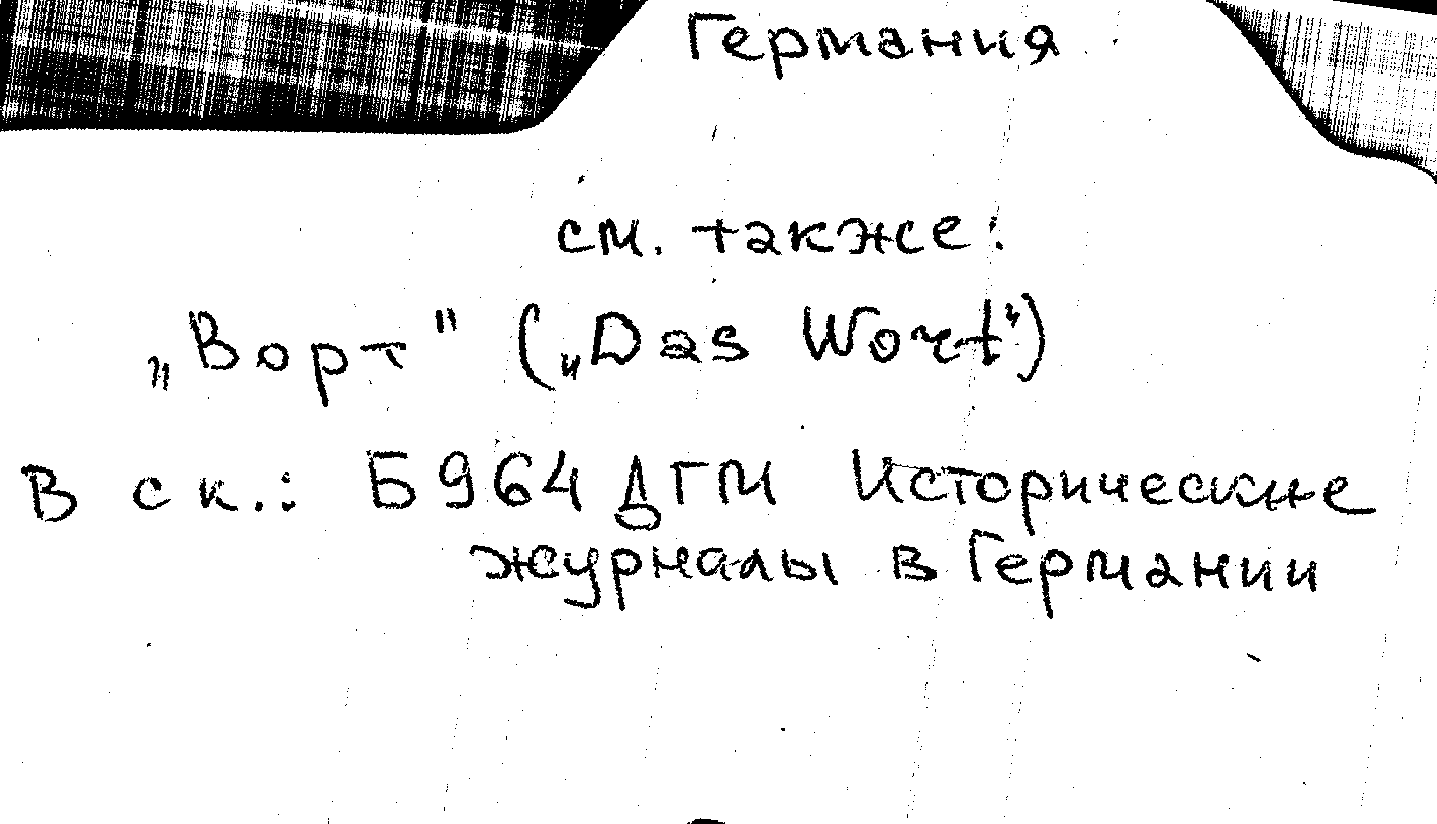 Германия
см. также:
„Ворт" („Das Wort")
В ск.: Б964 ДГМ Исторические
журналы в Германии